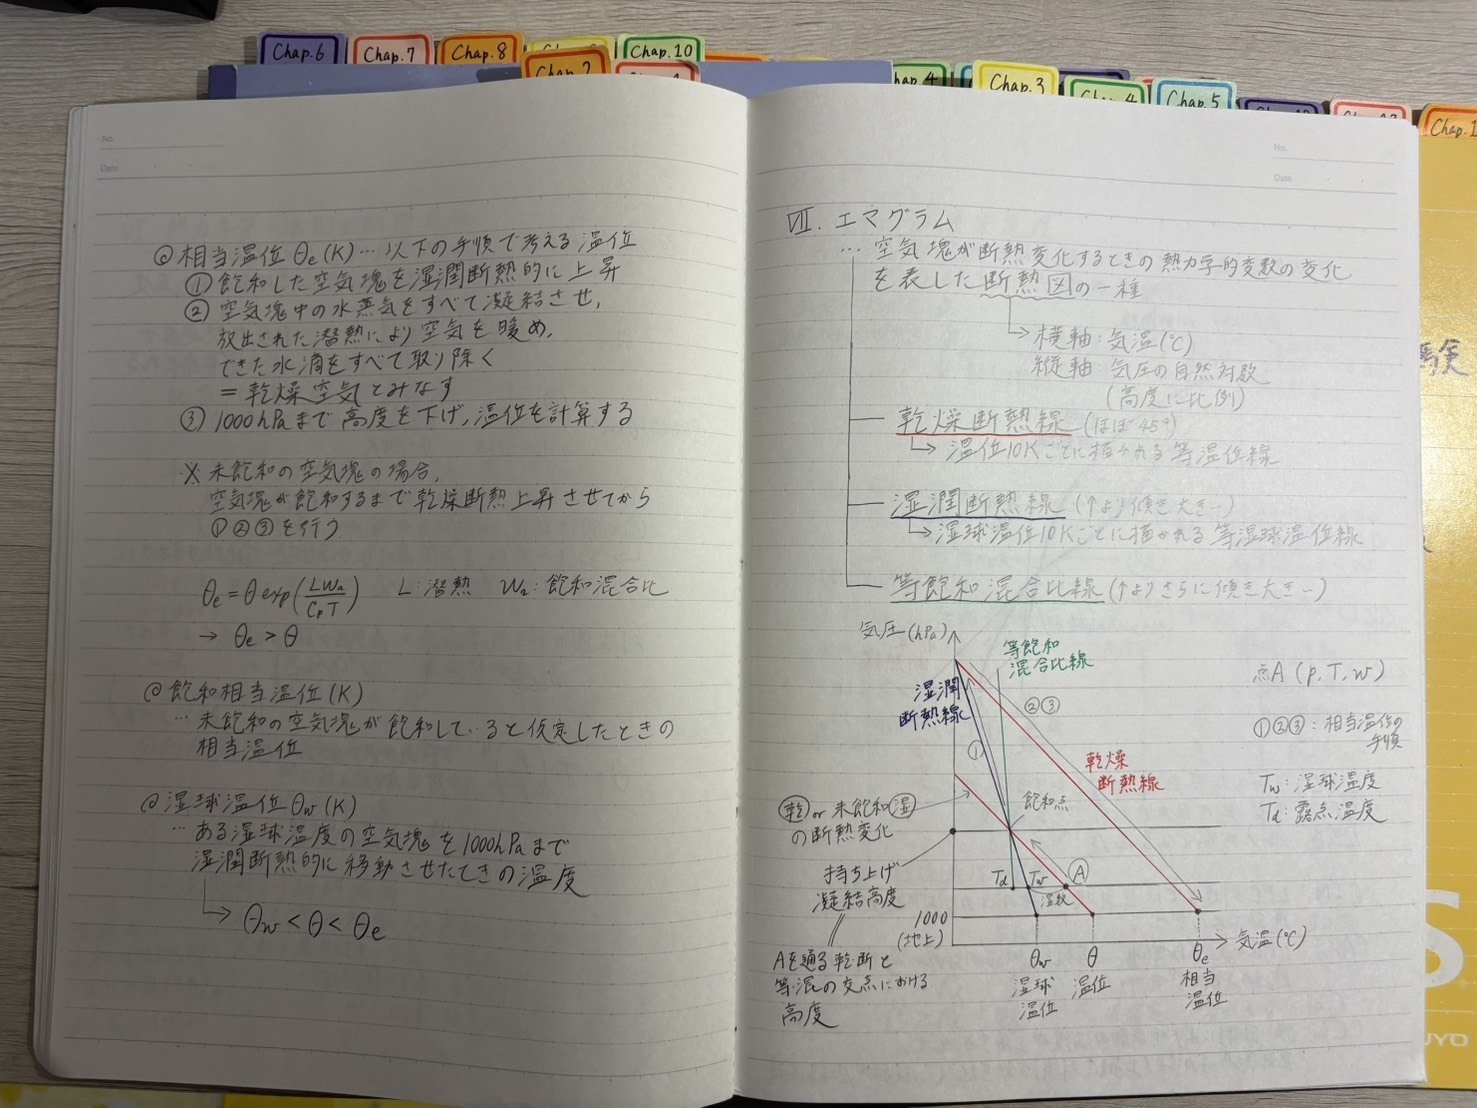 Chap.6
Chap.7
Chap.8
Chap.10
Chap.2
Chap.3
Chap.4
Chap.5
No.
Date
◎ 相当温位 θe (K) … 以下の手順で考える温位
① 飽和した空気塊を湿潤断熱的に上昇
② 空気塊中の水蒸気をすべて凝結させ,
放出された潜熱により空気を暖め,
できた水滴をすべて取り除く
= 乾燥空気とみなす
③ 1000hPaまで高度を下げ, 温位を計算する
※ 未飽和の空気塊の場合,
空気塊が飽和するまで乾燥断熱上昇させてから
①②③を行う
θe = θ exp(LWs/CpT) L:潜熱 Ws:飽和混合比
→ θe > θ
◎ 飽和相当温位 (K)
… 未飽和の空気塊が飽和していると仮定したときの
相当温位
◎ 湿球温位 θw (K)
… ある湿球温度の空気塊を1000hPaまで
湿潤断熱的に移動させたときの温度
→ θw < θ < θe
No.
Date
Ⅶ. エマグラム
… 空気塊が断熱変化するときの熱力学的変数の変化
を表した断熱図の一種
→ 横軸:気温(℃)
縦軸:気圧の自然対数
(高度に比例)
乾燥断熱線 (ほぼ45°)
→ 温位10Kごとに描かれる等温位線
湿潤断熱線 (↑より傾き大きい)
→ 湿球温位10Kごとに描かれる等湿球温位線
等飽和混合比線 (↑よりさらに傾き大きい)
気圧(hPa)
等飽和
混合比線
湿潤
断熱線
②③
①
乾燥
断熱線
点A (p, T, w)
①②③:相当温位の
手順
Tw:湿球温度
Td:露点温度
乾 or 未飽和湿
の断熱変化
飽和点
持ち上げ
凝結高度
Td
Tw
A
湿数
1000
(地上)
気温(℃)
Aを通る乾断と
等混の交点における
高度
θw
湿球
温位
θ
温位
θe
相当
温位